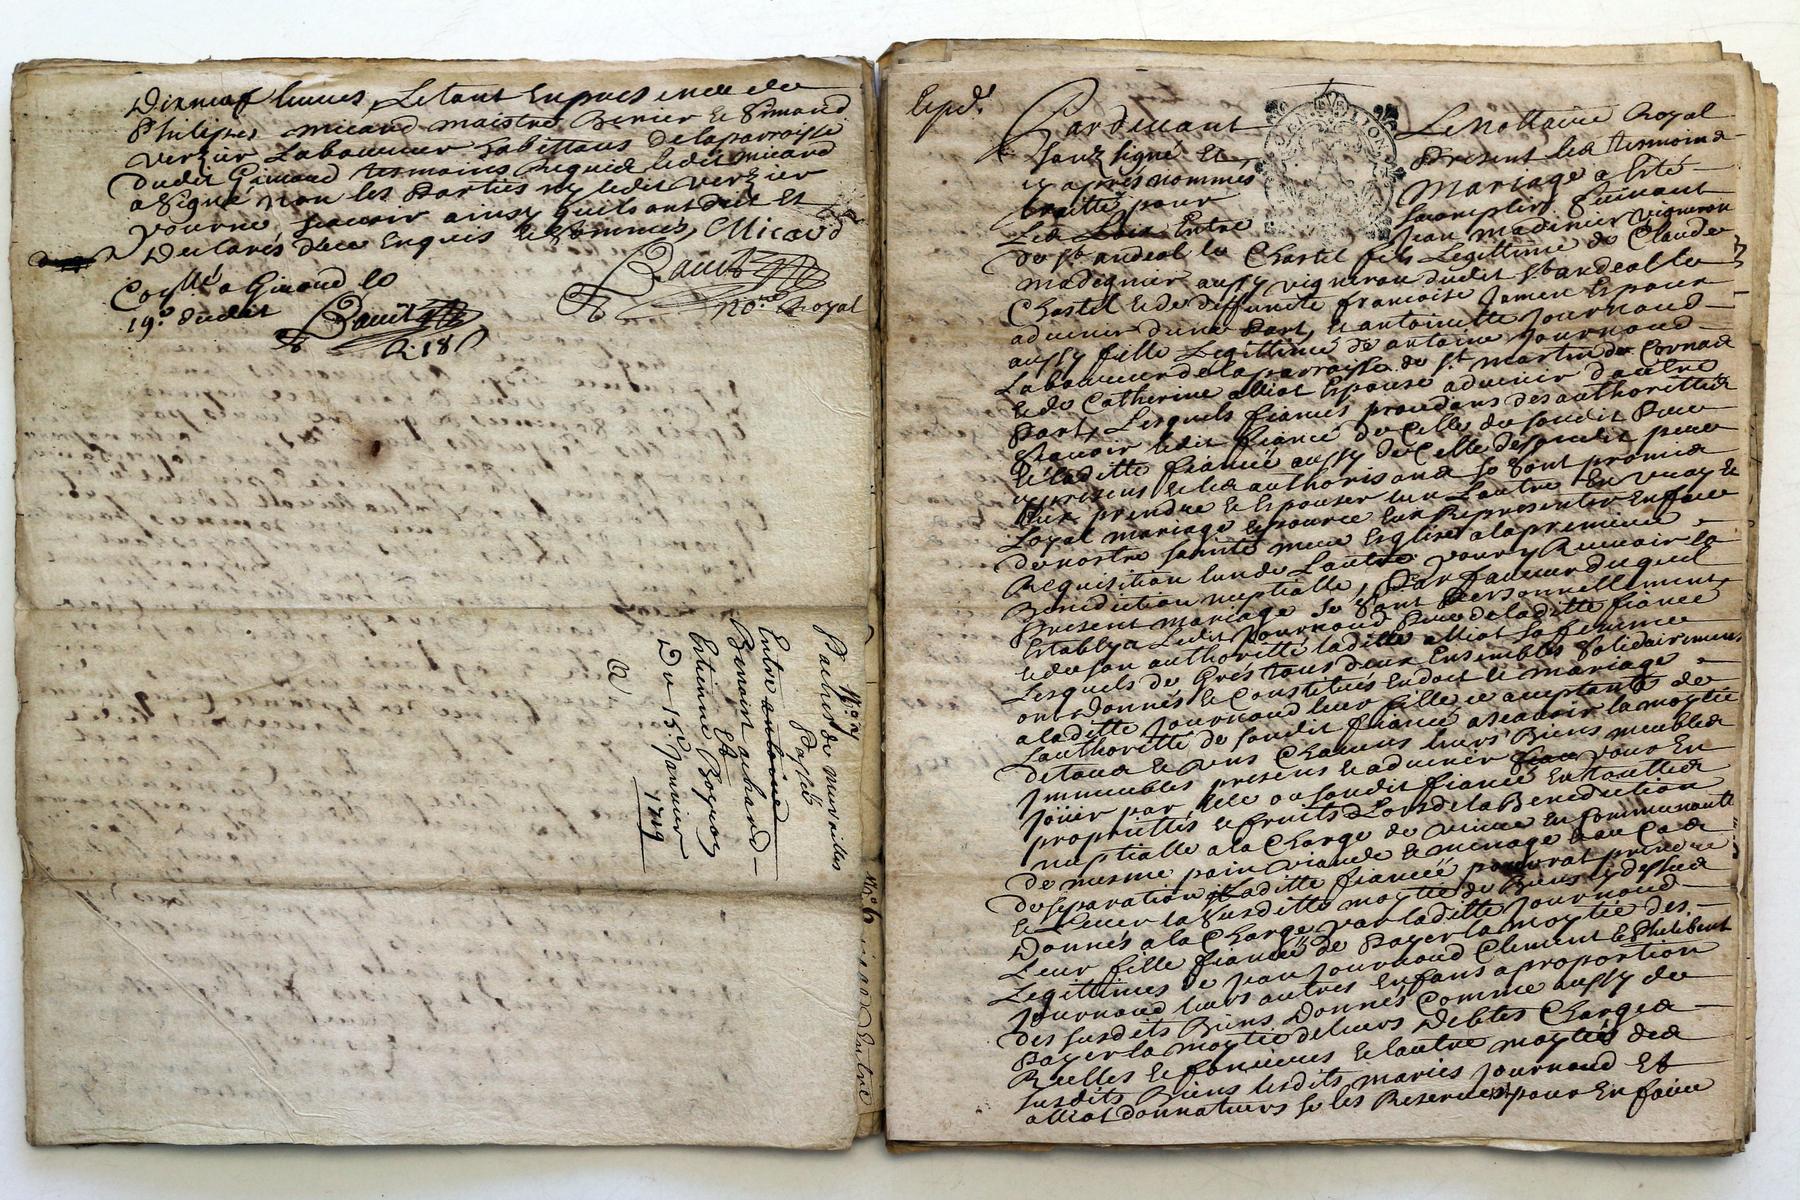 Dixneuf livres, Letout En presence de
Philipes micaud maistre Benier Et Simond
verzier Laboureur habittans dela parroisse
dudit Girnaud tesmoins Requis ledit micaud
a Signé non les Parties ny ledit verzier
pour ne scavoir ainsy quils ont dit Et
Declarés dece Enquis Et Sommés, Micaud
nore Royal
Collé a Girnaud le
19e dudit
R. 18 s
Pache de
Passés
Entre antoine
Benoist achard
Et
Entienne
Du 15e Janvier
1719
Expdé
Pardevant Le Nottaire Royal
Souz signé Et Present les tesmoins
cy apres nommés Mariage a Esté
traitté pour saccomplir Suivant
Les Loix Entre Jean madinier vigneron
de St andeol le Chastel fils Legittime de Claude
madignier aussy vigneron dudit St andeol le
Chastel Et de deffuncte francoise Jamen Espoux
advenir dune Part, Et antoinette Journoud
aussy fille Legittime de antoine Journoud
Laboureur dela parroisse de St martin de Cornas
Et de Catherine alliot Espouse advenir dautre
Part, Lesquels fiancés procedans des authorittés
Scavoir ledit fiancé de Celle de soudit Pere
Et laditte fiancée aussy de Celle desesdit pere
cy presens Et les authorisans se sont promis
Eux prendre Et Espouser lun Lautre En vray Et
Loyal mariage Et pource Eux Representer Enface
de nostre sainte mere Eglise ala premiere
Requisition lun de Lautre pour y Recevoir la
Benediction nuptialle, Par faveur duquel
Present mariage se sont Personnellement
Establys Ledit Journoud Pere de laditte fiancée
et de son authoritté laditte alliot sa femme
Lesquels de Grés tous deux Ensembles Solidairement
ont donnés Et Constitués En dot Et mariage
aladitte Journoud leur fille ce acceptante de
Lauthoritté de soudit fiancé a scavoir la moytié
de tous Et uns Chacuns leurs Biens meubles
Immeubles presens Et advenir pour En
Jouir par Elle ou soudit fiancé En touttes
proprietés Et fruits Lors de la Benediction
nuptialle ala Charge de vivre En Communauté
de mesme pain viande Et menage Et au Cas de
de separation laditte fiancée pourrat prendre
Et lever la Susditte moytié de Biens cydessus
Donnés ala Charge par laditte Journoud
Leur fille fiancée de Payer la moytié des
Legittimes de Jean Journoud Clement Et Philibert
Journoud leurs autres Enfans a proportion
des susdits Biens Donnés Comme aussy de
Payer la moytié de leurs Debtes Charges
Reelles Et foncieres Et lautre moytié des
susdits Biens lesdits mariés Journoud Et
alliot donnateurs se les Reservent pour En faire